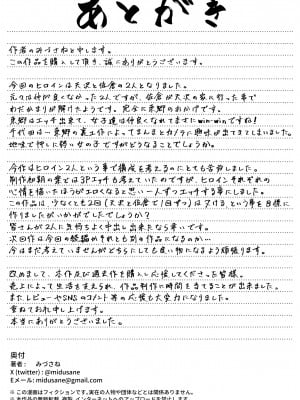 あとがき
作者のみづさねと申します。
この作品を購入して頂き、誠にありがとうございます。
今回のヒロインは大沢と佐倉の2人となりました。
元々は仲が良くなかった2人ですが、佐倉が大沢の家に行った事で
わだかまりが解けたようです。完全に東郷のおかげです。
東郷はエッチ出来て、女子達は仲良くなれてまさにwin-winですね!
千代田は一東郷の裏工作によってまんまとカラに興味が出てきてしまいました。
地味で押しに弱い女の子ですがどうなることでしょうか。
今作はヒロイン2人という事で構成を考えるのにとても苦労しました。
制作が始め頃は3Pエッチも考えていたのですが、ヒロインそれぞれの
心情を描いたほうがエロくなると思い一人ずつエッチする事にしました。
この作品は、少なくとも2回(大沢と佐倉で1回ずつ)はヌける、という事を目標に
作りましたがいかがでしたでしょうか?
皆さんが2人に気持ちよく中出し出来たなら幸いです。
次回作は今回の続編かそれとも別の作品になるのか…
今はまだ考えていませんがどちらにしても良い物になるよう頑張ります。
改めまして、本作及び過去作を購入し応援してくださった皆様。
売上によって生活を支えられ、作品制作に時間を当てることが出来ました。
またレビューやSNSのコメント等の応援も大変力になりました。
重ねてお礼申し上げます。
本当にありがとうございました。
奥付
著者: みづさね
X(twitter):@midusane
Eメール:midusane@gmail.com
※この漫画はフィクションです。実在の人物や団体などとは関係ありません。
※本作品の無断転載、複製、インターネットへのアップロードを禁止します。